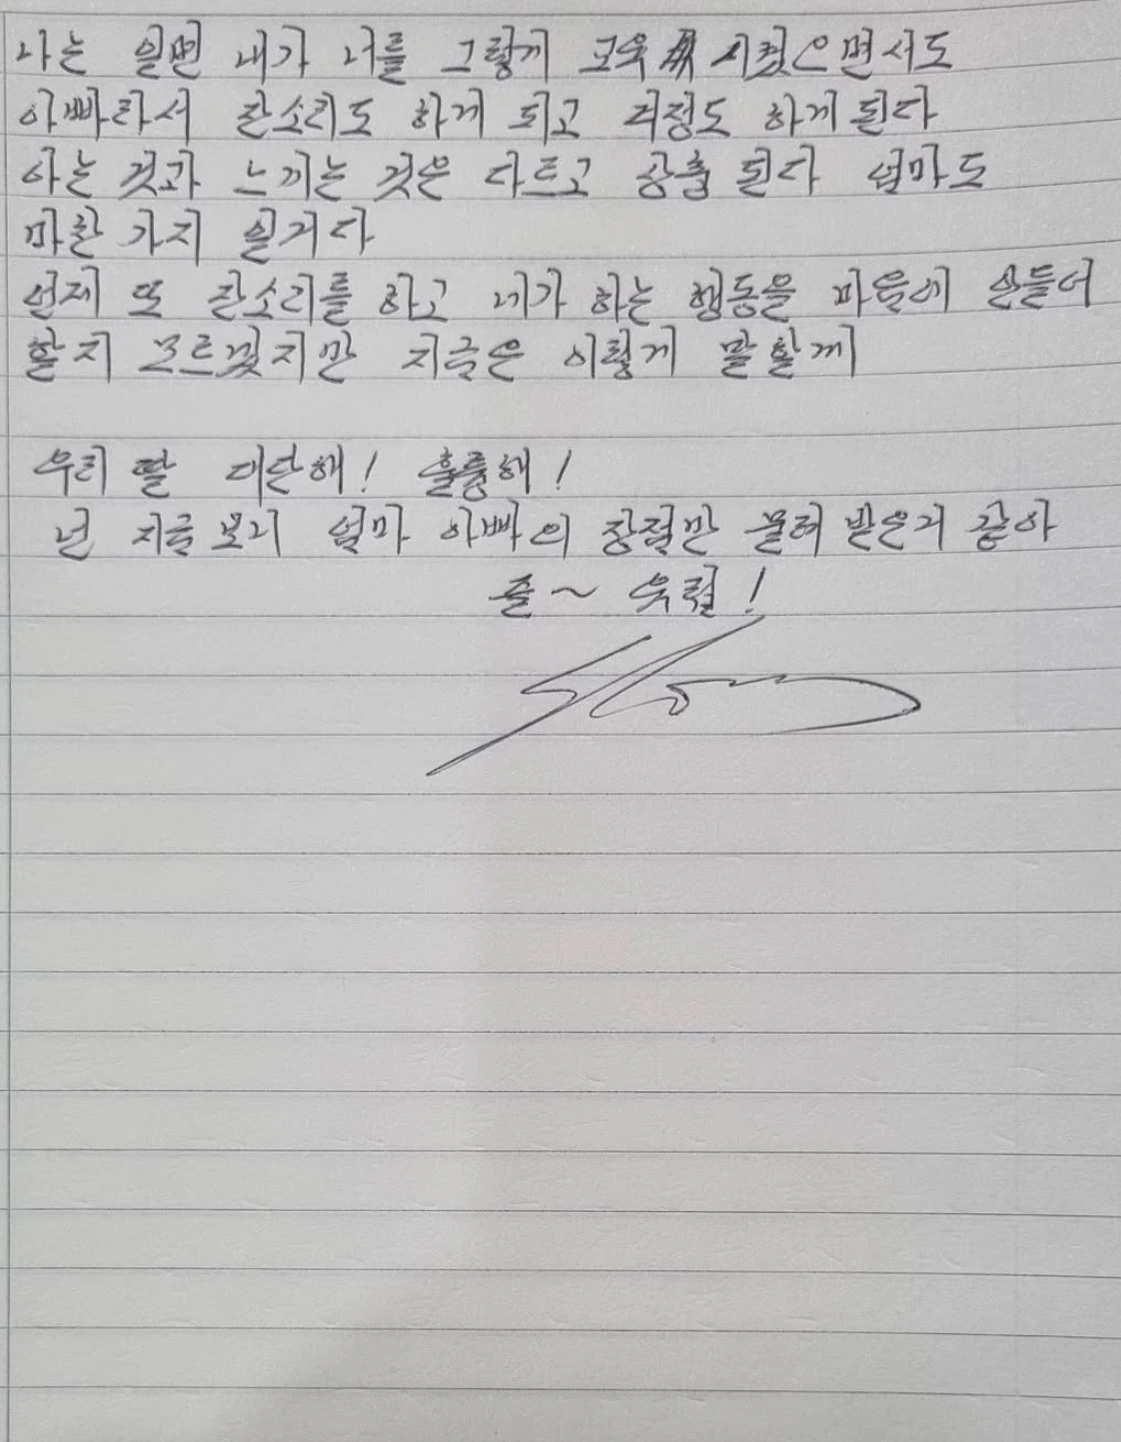 나는 일면 내가 너를 그렇게 교육 시켰으면서도
아빠라서 잔소리도 하게 되고 걱정도 하게 된다
아는 것과 느끼는 것은 다르고 상충 된다 엄마도
마찬 가지 일거다
언제 또 잔소리를 하고 네가 하는 행동을 마음에 안들어
할지 모르겠지만 지금은 이렇게 말할께
우리 딸 대단해! 훌륭해!
넌 지금 보니 엄마 아빠의 장점만 물려 받은거 같아
줄~ 우월!